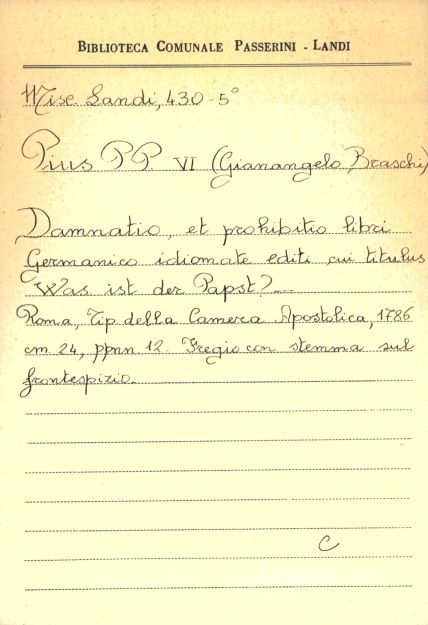 BIBLIOTECA COMUNALE PASSERINI - LANDI
Misc. Landi, 430-5°
Pius P.P. VI (Gianangelo Braschi)
Damnatio, et prohibitio libri
Germanico idiomate editi cui titulus
Was ist der Papst?...
Roma, Tip. della Camera Apostolica, 1786
cm. 24, ppnn. 12. Fregio con stemma sul
frontespizio.
C